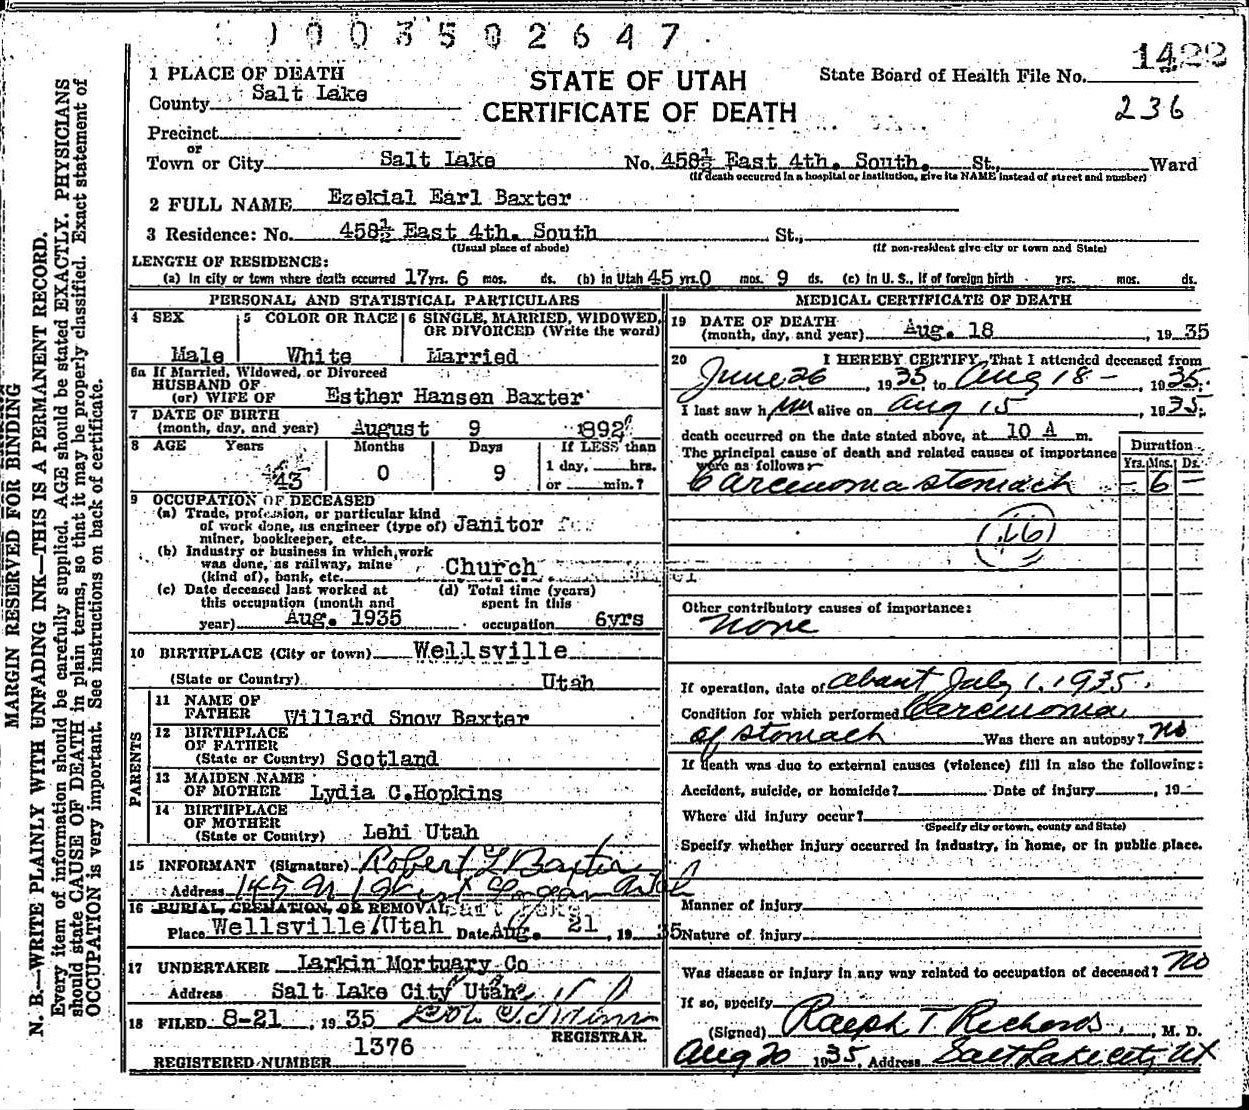 0 0 3 5 0 2 6 4 7
1 PLACE OF DEATH
STATE OF UTAH
CERTIFICATE OF DEATH
State Board of Health File No. 1422
236
County Salt Lake
Precinct
or
Town or City Salt Lake No. 458½ East 4th. South. St., Ward
(If death occurred in a hospital or institution, give its NAME instead of street and number)
2 FULL NAME Ezekial Earl Baxter
3 Residence: No. 458½ East 4th. South St.,
(Usual place of abode) (If non-resident give city or town and State)
LENGTH OF RESIDENCE:
(a) In city or town where death occurred 17 yrs. 6 mos. ds. (b) In Utah 45 yrs. 0 mos. 9 ds. (c) In U. S., if of foreign birth yrs. mos. ds.
PERSONAL AND STATISTICAL PARTICULARS
4 SEX Male
5 COLOR OR RACE White
6 SINGLE, MARRIED, WIDOWED, OR DIVORCED (Write the word) Married
6a If Married, Widowed, or Divorced
HUSBAND OF
(or) WIFE OF Esther Hansen Baxter
7 DATE OF BIRTH
(month, day, and year) August 9 1892
8 AGE Years Months Days If LESS than
43 0 9 1 day, hrs.
or min.?
9 OCCUPATION OF DECEASED
(a) Trade, profession, or particular kind
of work done, as engineer (type of) Janitor
miner, bookkeeper, etc.
(b) Industry or business in which work
was done, as railway, mine Church
(kind of), bank, etc.
(c) Date deceased last worked at
this occupation (month and
year) Aug. 1935
(d) Total time (years)
spent in this
occupation 6yrs
10 BIRTHPLACE (City or town) Wellsville
(State or Country) Utah
PARENTS
11 NAME OF
FATHER Willard Snow Baxter
12 BIRTHPLACE
OF FATHER
(State or Country) Scotland
13 MAIDEN NAME
OF MOTHER Lydia C.Hopkins
14 BIRTHPLACE
OF MOTHER
(State or Country) Lehi Utah
15 INFORMANT (Signature) Robert L Baxter
Address 145 1st Logan Utah
16 BURIAL, CREMATION, OR REMOVAL
Place Wellsville Utah Date Aug. 21, 1935
17 UNDERTAKER Larkin Mortuary Co
Address Salt Lake City Utah
18 FILED 8-21, 1935
REGISTRAR.
REGISTERED NUMBER 1376
MEDICAL CERTIFICATE OF DEATH
19 DATE OF DEATH
(month, day, and year) Aug. 18, 1935
20 I HEREBY CERTIFY, That I attended deceased from
June 26, 1935 to Aug 18-, 1935.
I last saw h im alive on Aug 15, 1935.
death occurred on the date stated above, at 10 A m.
The principal cause of death and related causes of importance
were as follows:
Duration
Yrs. Mos. Ds.
Carcinoma stomach - 6 -
(46)
Other contributory causes of importance:
None
If operation, date of about July 1, 1935.
Condition for which performed Carcinoma
of stomach Was there an autopsy? no
If death was due to external causes (violence) fill in also the following:
Accident, suicide, or homicide? Date of injury, 19
Where did injury occur?
(Specify city or town, county and State)
Specify whether injury occurred in industry, in home, or in public place.
Manner of injury
Nature of injury
Was disease or injury in any way related to occupation of deceased? No
If so, specify
(Signed) Ralph T Richards, M. D.
Aug 20 1935, Address Salt Lake City Ut
MARGIN RESERVED FOR BINDING
N. B.—WRITE PLAINLY WITH UNFADING INK—THIS IS A PERMANENT RECORD.
Every item of information should be carefully supplied. AGE should be stated EXACTLY. PHYSICIANS
should state CAUSE OF DEATH in plain terms, so that it may be properly classified. Exact statement of
OCCUPATION is very important. See instructions on back of certificate.